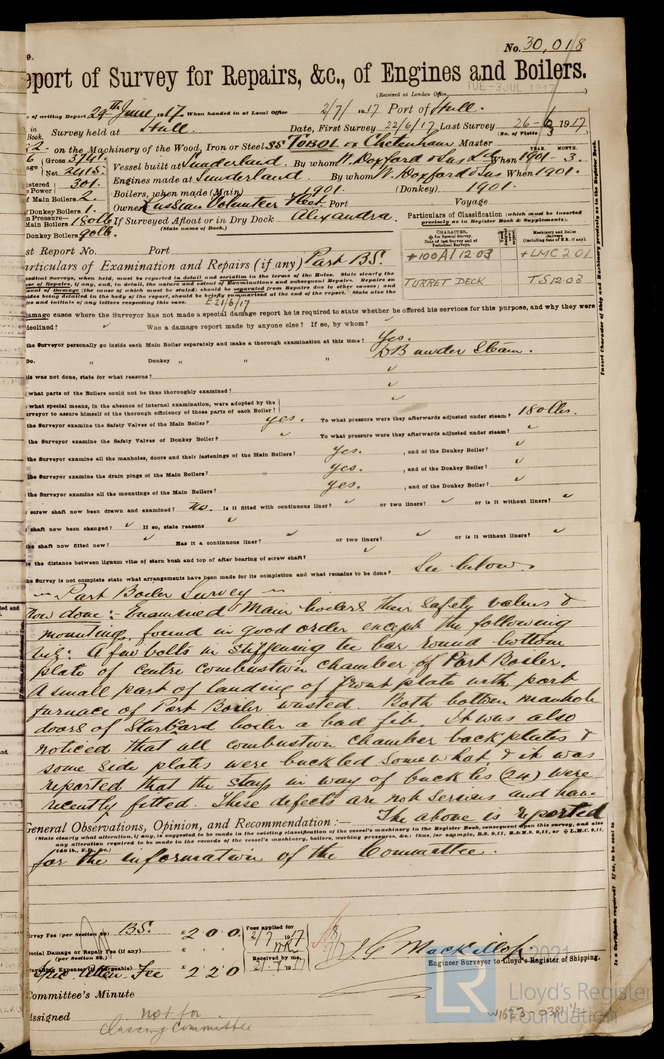 9.
No. 30,018
eport of Survey for Repairs, &c., of Engines and Boilers.
(Received at London Office
TUE - 3 JUL 1917
of writing Report 24th June 1917 When handed in at Local Office 2/7/1917 Port of Hull.
in Book. Survey held at Hull Date, First Survey 22/6/17 Last Survey 26-6-1917
(No. of Visits 3
on the Machinery of the Wood, Iron or Steel SS TOBOL ex Cheltenham Master
Gross 3741 Vessel built at Sunderland By whom W. Doxford & Sons Ld When 1901-3.
YEAR. MONTH.
Net 2415 Engines made at Sunderland By whom W. Doxford & Sons When 1901.
istered Power 301. Boilers, when made (Main) 1901. (Donkey) 1901.
of Main Boilers 2. Owners Russian Volunteer Fleet Port Voyage
of Donkey Boilers 1. If Surveyed Afloat or in Dry Dock Alexandra.
(State name of Dock.)
Pressure—
Main Boilers 180lb
Donkey Boilers 90lb.
Particulars of Classification (which must be inserted precisely as in Register Book & Supplements).
st Report No. Port
CHARACTER.
+100A1 12.03 +LMC 2.01
TURRET DECK TS 12.03
articulars of Examination and Repairs (if any) Part B.S.
E 21/6/17
damage cases where the Surveyor has not made a special damage report he is required to state whether he offered his services for this purpose, and why they were
declined? Was a damage report made by anyone else? If so, by whom?
the Surveyor personally go inside each Main Boiler separately and make a thorough examination at this time? Yes.
Do. „ Donkey „ „ „ DB under Steam.
this was not done, state for what reasons?
what parts of the Boilers could not be thus thoroughly examined?
what special means, in the absence of internal examination, were adopted by the
surveyor to assure himself of the thorough efficiency of those parts of each Boiler?
the Surveyor examine the Safety Valves of the Main Boiler? yes. To what pressure were they afterwards adjusted under steam? 180 lbs.
the Surveyor examine the Safety Valves of Donkey Boiler? To what pressure were they afterwards adjusted under steam?
the Surveyor examine all the manholes, doors and their fastenings of the Main Boilers? yes. , and of the Donkey Boiler?
the Surveyor examine the drain plugs of the Main Boilers? yes. , and of the Donkey Boiler?
the Surveyor examine all the mountings of the Main Boilers? yes. , and of the Donkey Boiler?
screw shaft now been drawn and examined? No. Is it fitted with continuous liner? or two liners? or is it without liners?
shaft now been changed? If so, state reasons
the shaft now fitted new? Has it a continuous liner? or two liners? or is it without liners?
is the distance between lignum vitæ of stern bush and top of after bearing of screw shaft?
the Survey is not complete state what arrangements have been made for its completion and what remains to be done? See below.
— Part Boiler Survey —
Now done:- Examined Main boilers their safety valves &
mountings, found in good order except the following
viz: A few bolts in stiffening tee bar round bottom
plate of centre combustion chamber of Port Boiler.
A small part of landing of front plate with port
furnace of Port Boiler wasted. Both bottom manhole
doors of Starboard boiler a bad fit. It was also
noticed that all combustion chamber back plates &
some side plates were buckled somewhat & it was
reported that the stays in way of buckles (24) were
recently fitted. These defects are not serious and have
General Observations, Opinion, and Recommendation:— The above is reported
for the information of the Committee.
Survey Fee (per Section) B.S. £ 2 0 0 Fees applied for 2/7/1917
Special Damage or Repair Fee (if any)
(per Section 28.)
Received by me,
Fee £ 2 2 0
J. C. MacKillop.
Engineer Surveyor to Lloyd's Register of Shipping.
Committee's Minute
Assigned not for
Classing Committee
2021
LR
Lloyd's Register
Foundation
W1623-0381 1/2